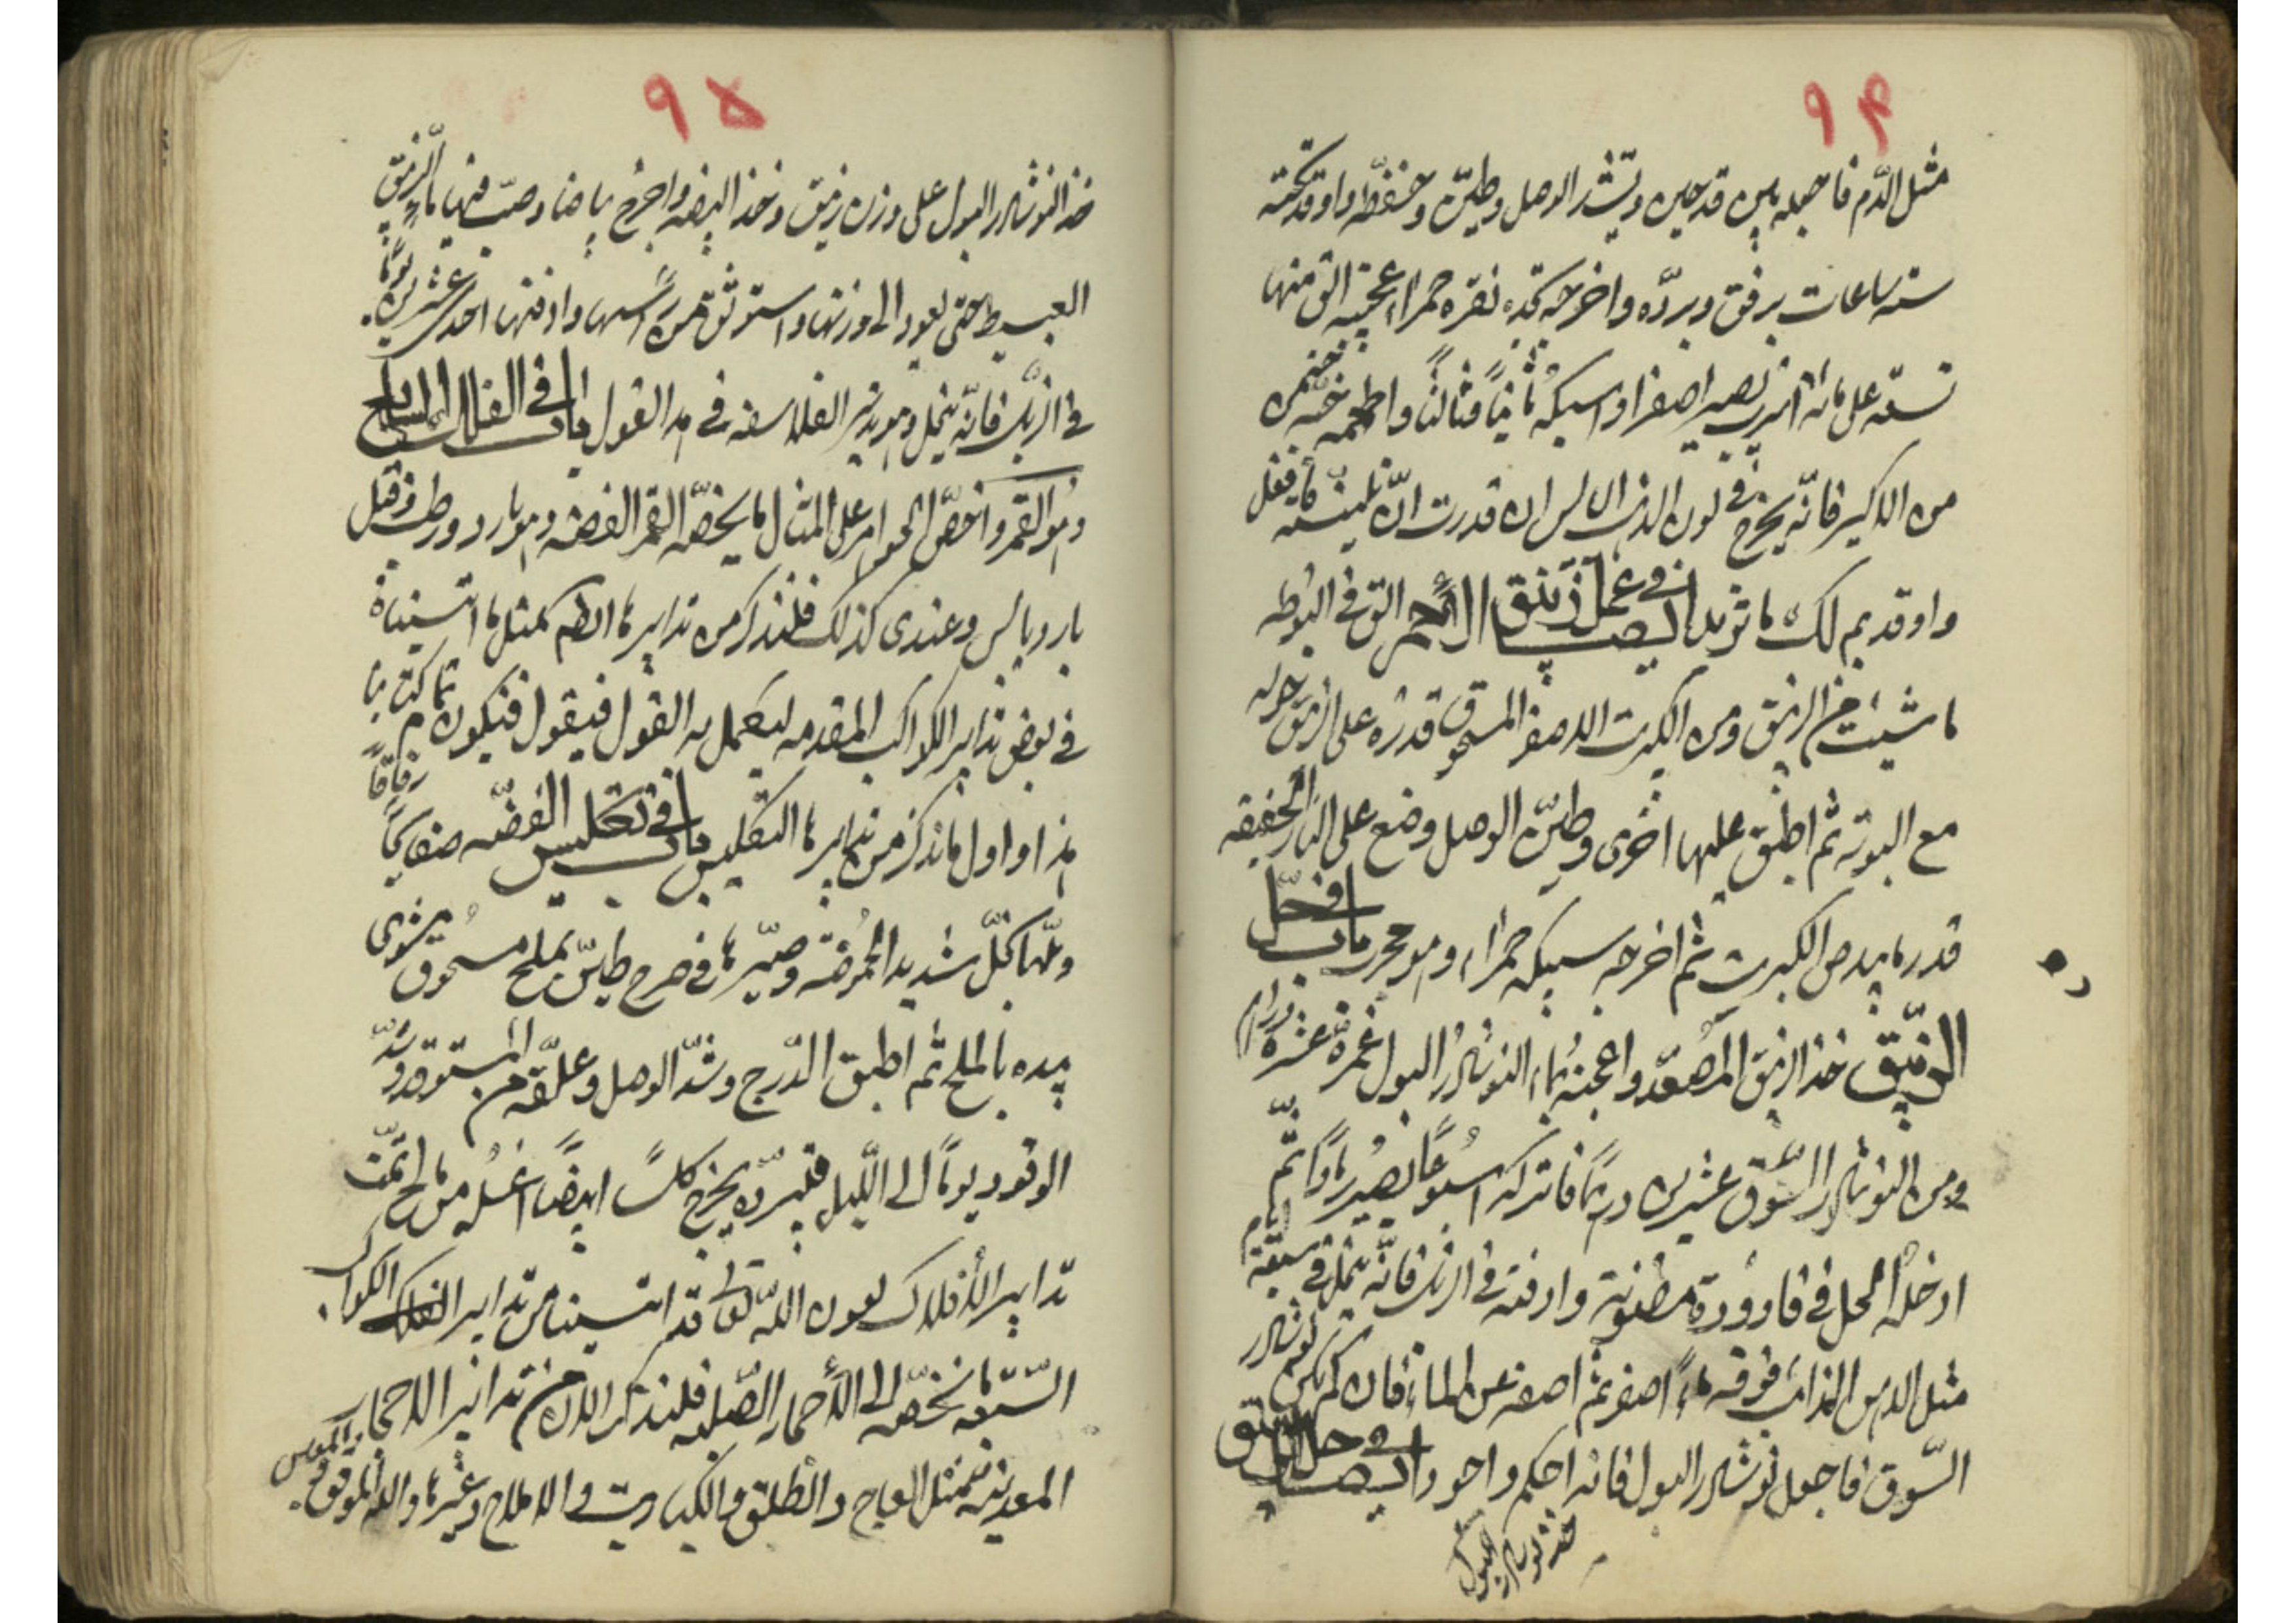 ۹۴
مثل الدّم فاجعله بين قدحين وشد الوصل وطيّن وجففه واوقد تحته
ستّ ساعات برفق وبرّده واخرجه تجده نقره حمراء عجيبة الق منها
تسعة على مائة اسرب يصير اصفر او اسبكه ثانياً وثالثاً واطعمه خمسه
من الاكسير فانّه يخرج فى لون الذهب الابريز ان قدرت ان تلينه فافعل
واوقد يتم لك ما تريد ايضا فى عمل زيبق الاحمر الق فى البوطه
ما شئت من الزيبق ومن الكبريت الاصفر المسحوق قدره على الزيبق حوله
مع البوتة ثم اطبق عليها اخرى وطيّن الوصل وضع على النار الخفيفه
قدر ما يدخن الكبريت ثم اخرجه سبيكه حمراء وهو مجرب باب فى حلّ
الزيبق خذ الزيبق المصعّد واعجنه بماء النوشادر البول غمرة عشرة دراهم
ومن النوشادر السّوق عشرين درهماً فاتركه اسبوعاً يصير ماءً ثم
ادخله الحل فى قارورة مطيّنة وادفنه فى الزبل فانّه ينحل فى سبعة ايام
مثل الدهن الذائب فوقه ماءً اصفر ثم اصفه عن الماء فان لم يكن نوشادر
السّوق فاجعل نوشادر البول فانه احكم واجود ايضا فى حل الزيبق
خذ نوشادر البول
۹۵
خذ النوشادر البول على وزن زيبق وخذ البيضه واخرج بياضها وصبّ فيها ماء الزيبق
العبيط حتى يعود الى وزنها واستوثق من رأسها وادفنها احد عشرين يوماً
فى الزبل فانّه ينحل وهو بئر الفلاسفه فى هذا القول باب فى الفلك السابع
وهو القمر واخصّ الجواهر على المثال ما يخصّه القمر الفضه وهو بارد ورطب وقيل
بارد يابس وعندى كذلك فلنذكر من تدابيرها ايضا كمثل ما اتيناه
فى بعض تدابير الكواكب المقدمه ليكمل به القول فيقول فيكون تمام كتابنا
هذا واول ما نذكر من تدابيرها التكليس باب فى تكليس الفضّه صفايحاً رقاقاً
وبلّها بخلّ شديد الحموضة وصيّرها فى درج طين بملح مسحوق مشوى
يبده بالملح ثم اطبق الدّرج وشدّ الوصل وعلّقه من المستوقد وشدّ
الوقود يوماً الى اللّيل فبرّده يخرج كلساً ابيضاً اغسله من مالح تمّت
تدابير الأفلاك بعون اللّه تعالى قد اتينا من تدابير الفلك الكواكب
السّبعه ما نخصّه الى الأحمار الصّلبه فلنذكر الان من تدابير الاحجار
المعدنيه كمثل الزجاج والطلق والكباريت والاملاح وغيرها والله الموفق